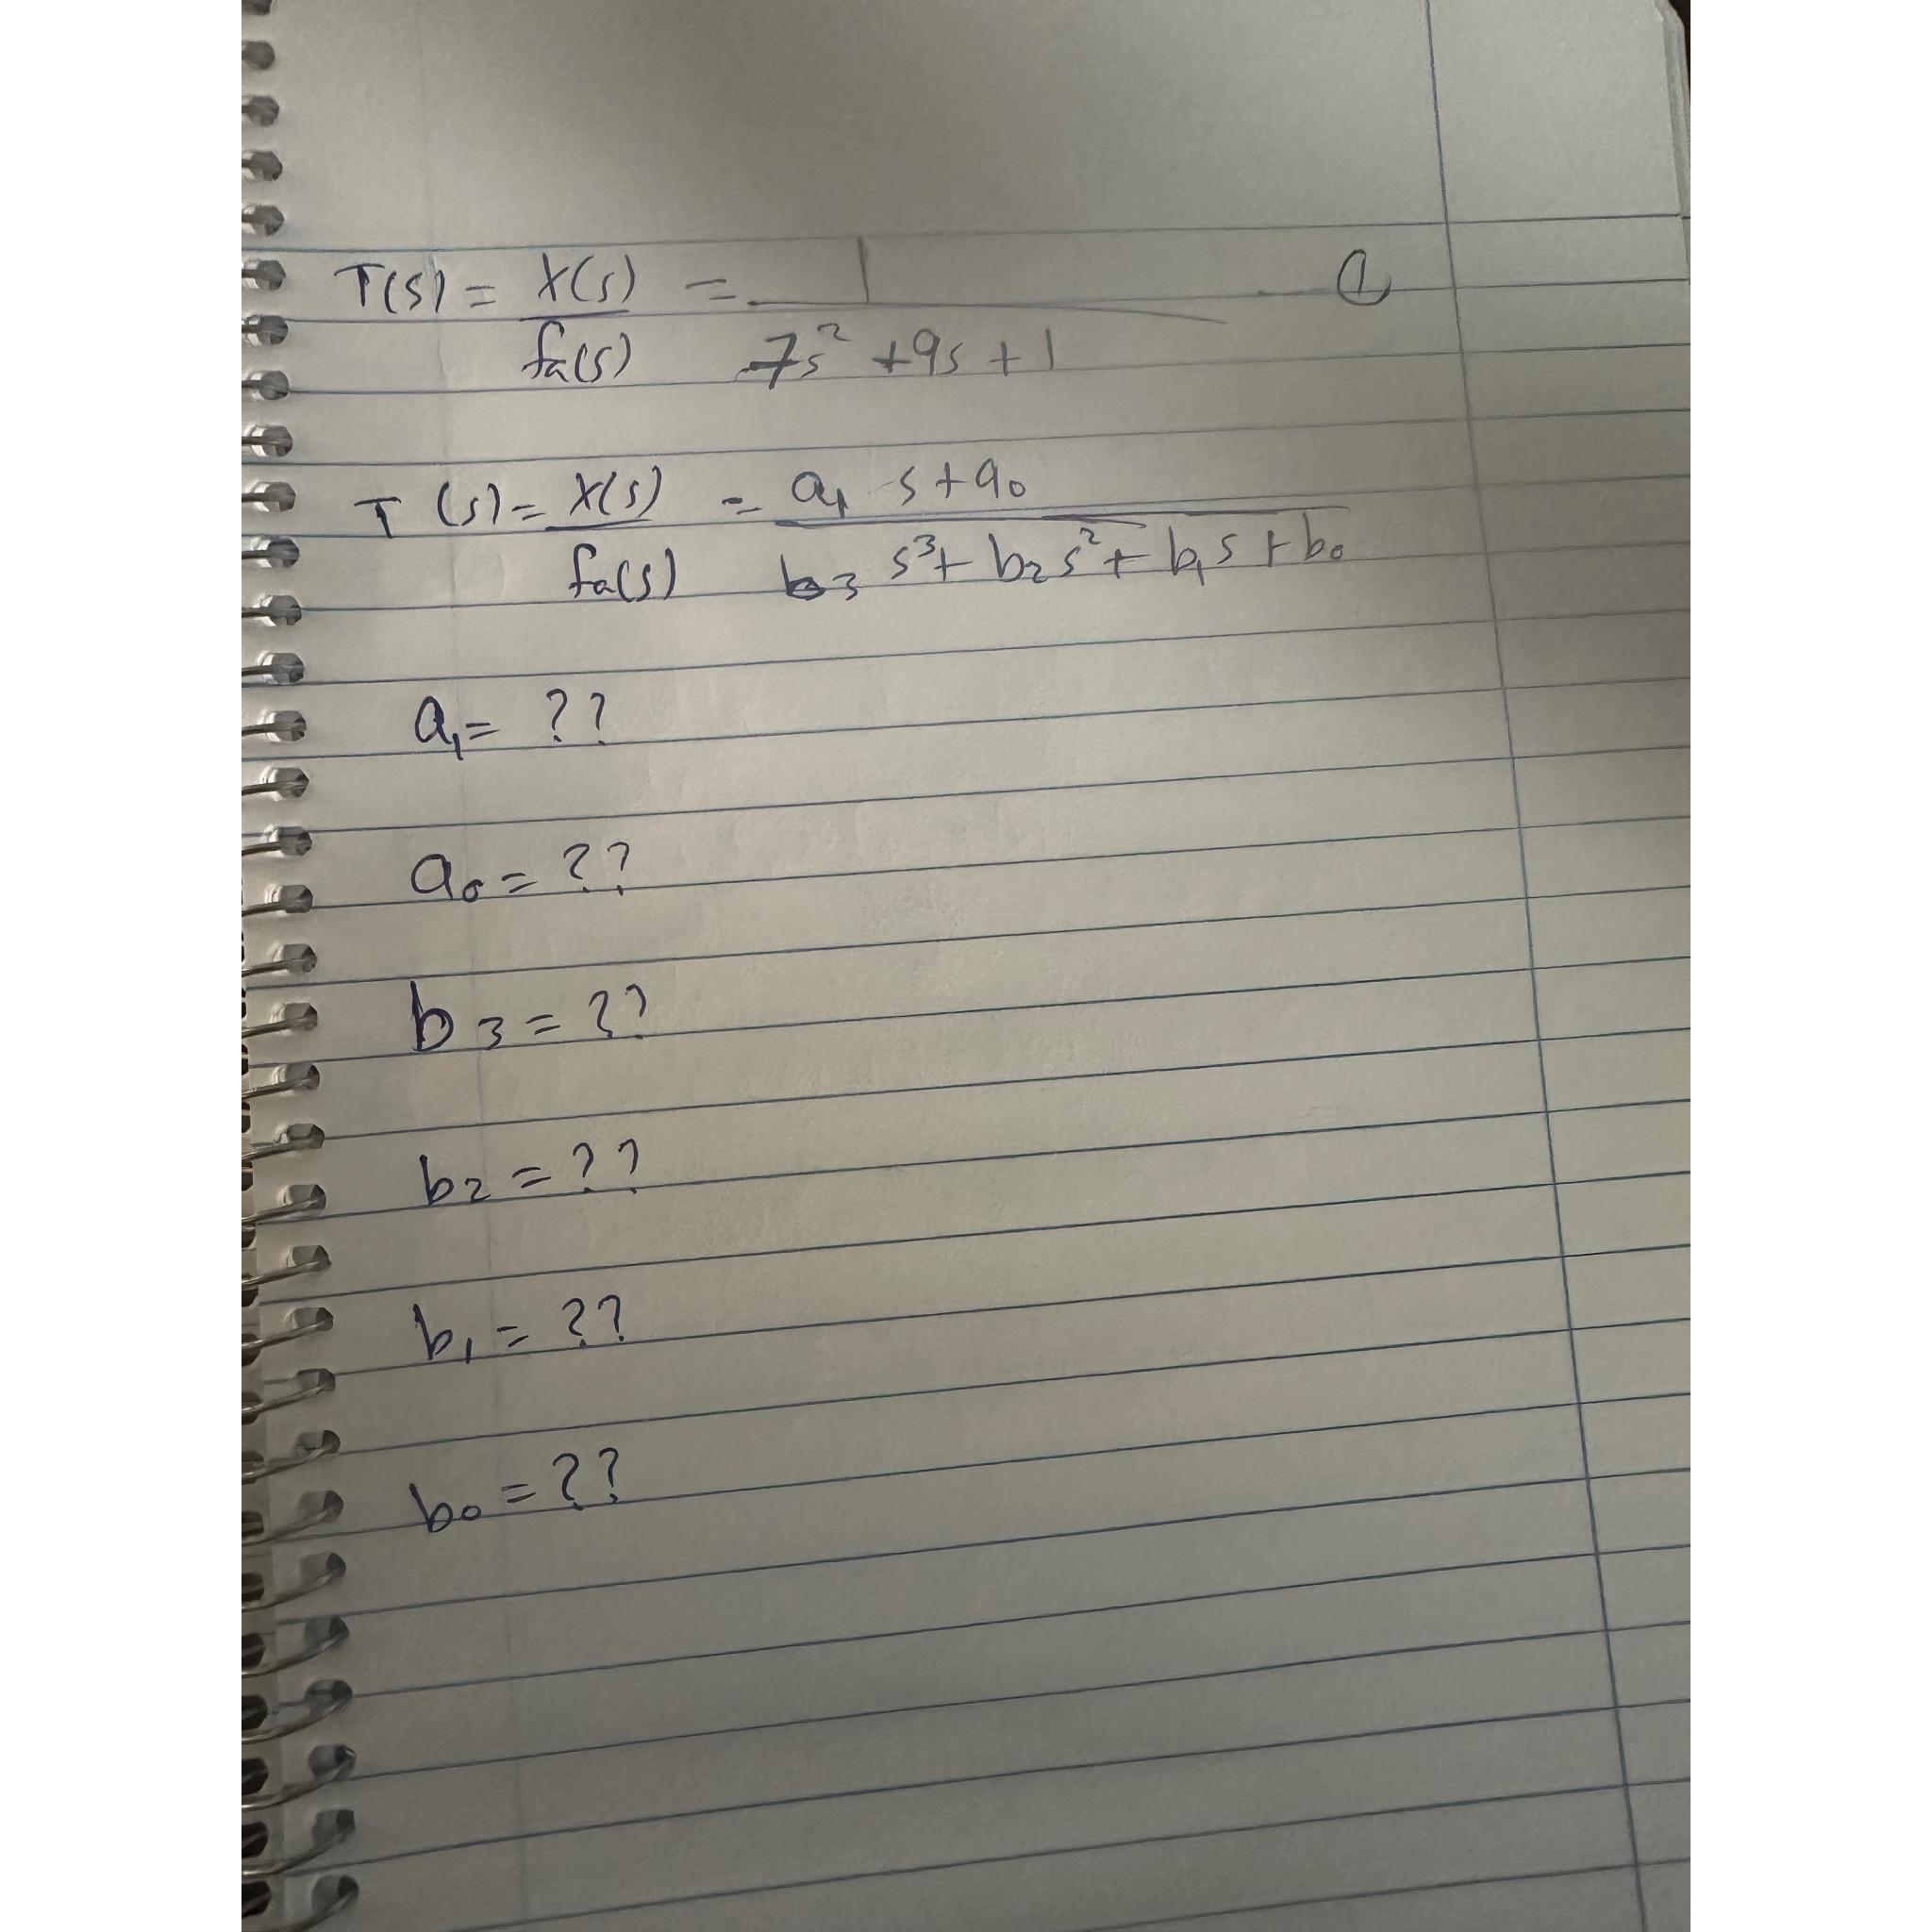 T(s) = X(s) / fa(s) = 1 / 7s² + 9s + 1 ①
T (s) = X(s) / fa(s) = a₁ s + a₀ / b₃ s³ + b₂s² + b₁s + b₀
a₁ = ??
a₀ = ??
b₃ = ??
b₂ = ??
b₁ = ??
b₀ = ??